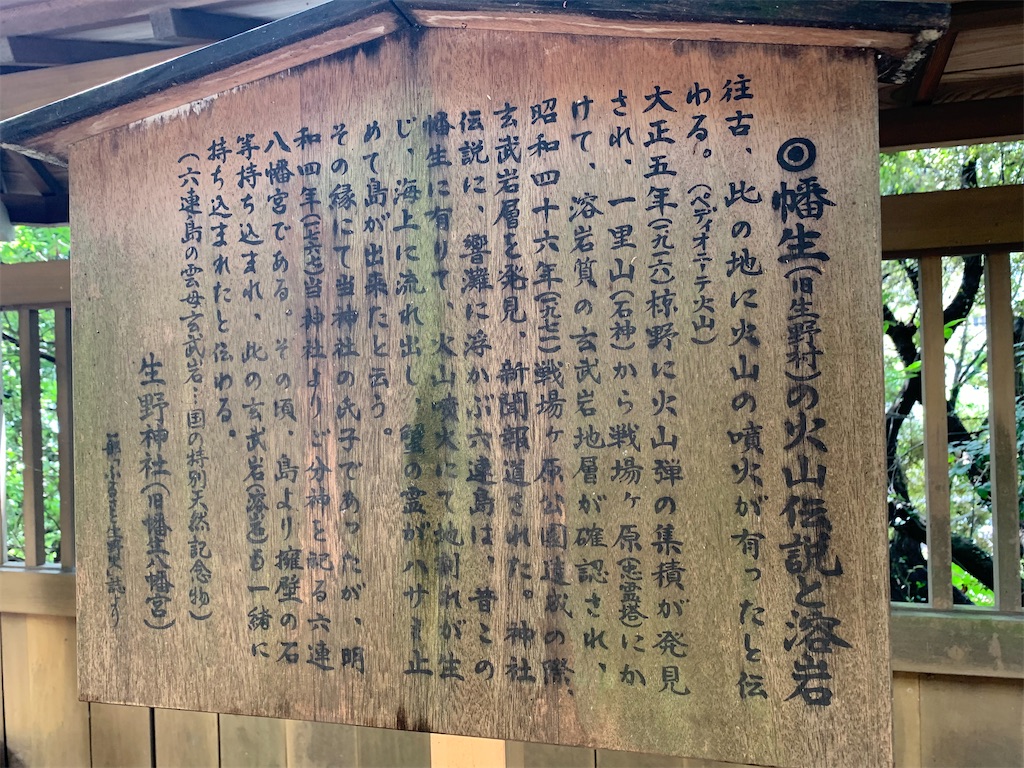 ◎幡生(旧生野村)の火山伝説と溶岩
往古、此の地に火山の噴火が有ったと伝
わる。(ペディオニーテ火山)
大正五年(一九一六)椋野に火山弾の集積が発見
され、一里山(石神)から戦場ヶ原(忠霊塔)にか
けて、溶岩質の玄武岩地層が確認され、
昭和四十六年(一九七一)戦場ヶ原公園造成の際、
玄武岩層を発見、新聞報道された。神社
伝説に、響灘に浮かぶ六連島は、昔この
幡生に有りて、火山噴火にて地割れが生
じ、海上に流れ出し、蟹の霊がハサミ止
めて島が出来たと云う。
その縁にて当神社の氏子であったが、明
和四年(一七六七)当神社よりご分神を記る六連
八幡宮である。その頃、島より擁壁の石
等持ち込まれ、此の玄武岩(溶岩)も一緒に
持ち込まれたと伝わる。
(六連島の雲母玄武岩…国の特別天然記念物)
生野神社(旧幡生八幡宮)
生野史誌より